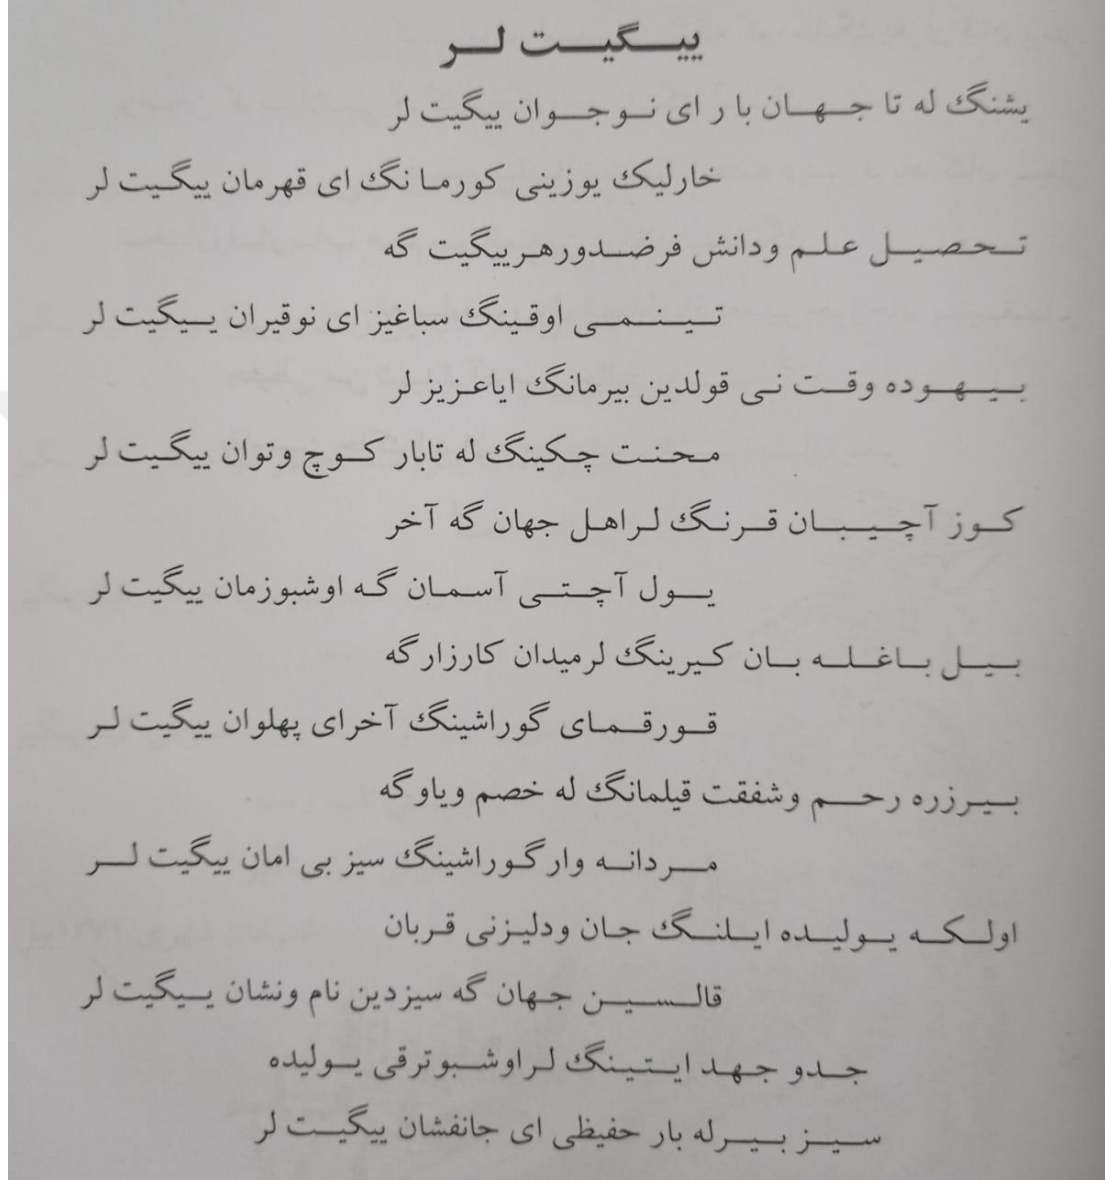 ییگیت لر
یشنگ له تا جهان با ر ای نوجوان ییگیت لر
خارلیک یوزینی کورما نگ ای قهرمان ییگیت لر
تحصیل علم ودانش فرضدورهرییگیت گه
تینمی اوقینگ سباغیز ای نوقیران ییگیت لر
بیهوده وقت نی قولدین بیرمانگ ایاعزیز لر
محنت چکینگ له تابار کوچ وتوان ییگیت لر
کوز آچیبان قرنگ لراهل جهان گه آخر
یول آچتی آسمان گه اوشبوزمان ییگیت لر
بیل باغله بان کیرینگ لرمیدان کارزارگه
قورقمای گوراشینگ آخرای پهلوان ییگیت لر
بیرزره رحم وشفقت قیلمانگ له خصم ویاوگه
مردانه وارگوراشینگ سیز بی امان ییگیت لر
اولکه یولیده ایلنگ جان ودلیزنی قربان
قالسین جهان گه سیزدین نام ونشان ییگیت لر
جدو جهد ایتینگ لراوشبوترقی یولیده
سیز بیرله بار حفیظی ای جانفشان ییگیت لر